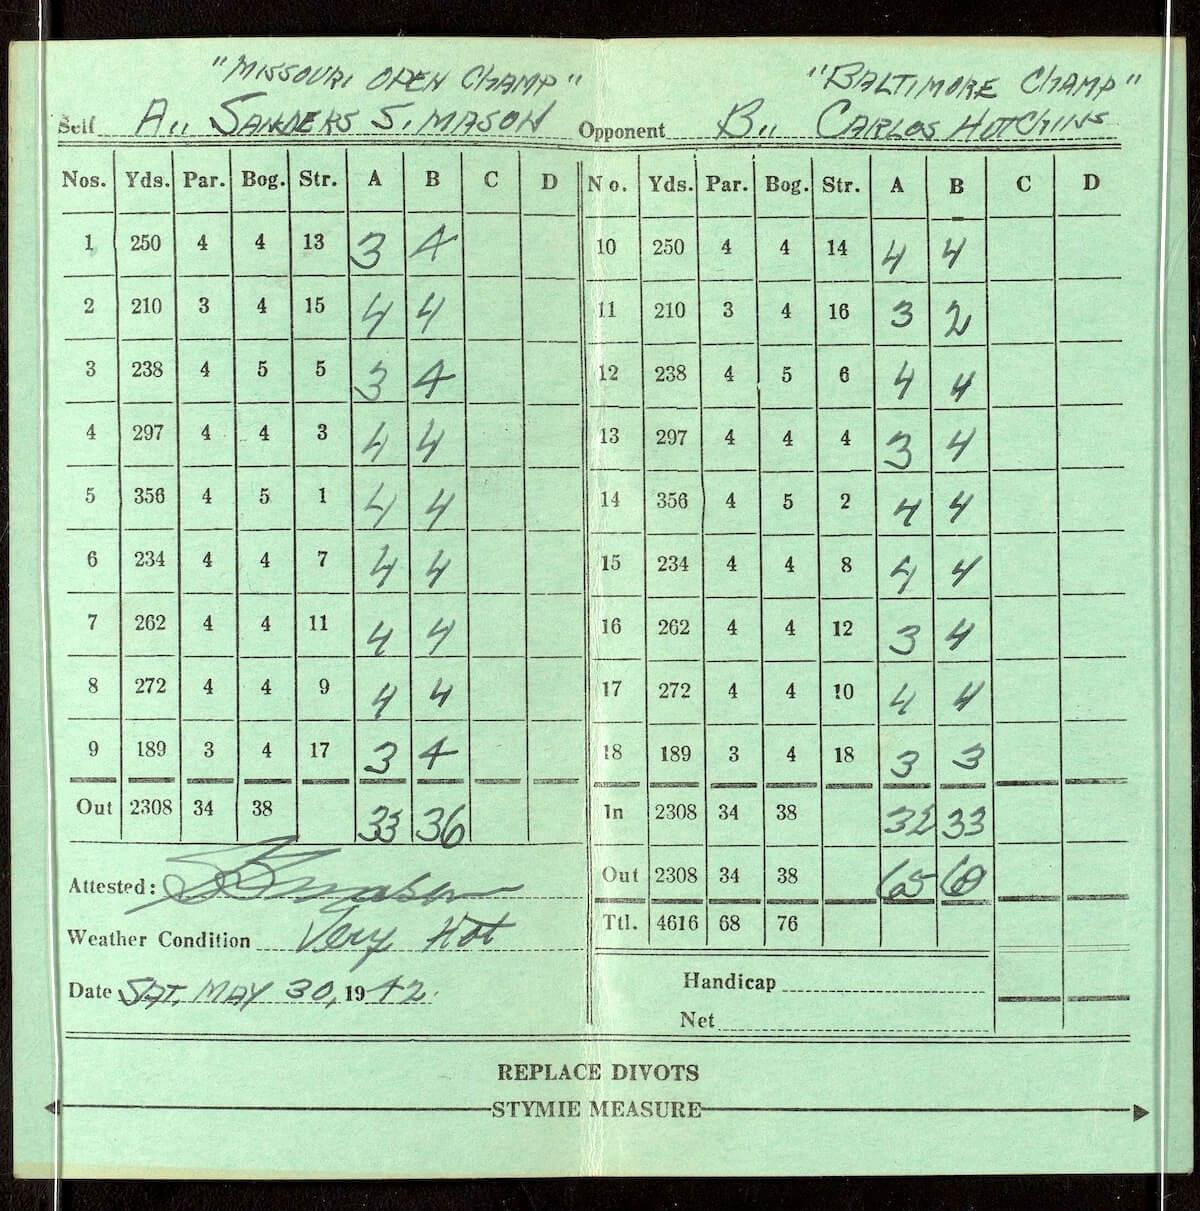 "MISSOURI OPEN CHAMP" "BALTIMORE CHAMP"
Self A.. SANDERS S. MASON Opponent B.. CARLOS HUTCHINS
Nos. Yds. Par. Bog. Str. A B C D No. Yds. Par. Bog. Str. A B C D
1 250 4 4 13 3 4 10 250 4 4 14 4 4
2 210 3 4 15 4 4 11 210 3 4 16 3 2
3 238 4 5 5 3 4 12 238 4 5 6 4 4
4 297 4 4 3 4 4 13 297 4 4 4 3 4
5 356 4 5 1 4 4 14 356 4 5 2 4 4
6 234 4 4 7 4 4 15 234 4 4 8 4 4
7 262 4 4 11 4 4 16 262 4 4 12 3 4
8 272 4 4 9 4 4 17 272 4 4 10 4 4
9 189 3 4 17 3 4 18 189 3 4 18 3 3
Out 2308 34 38 33 36 In 2308 34 38 32 33
Out 2308 34 38 65 69
Attested: Ttl. 4616 68 76
Weather Condition Very Hot
Handicap
Date SAT. MAY 30, 1942.
Net
REPLACE DIVOTS
STYMIE MEASURE